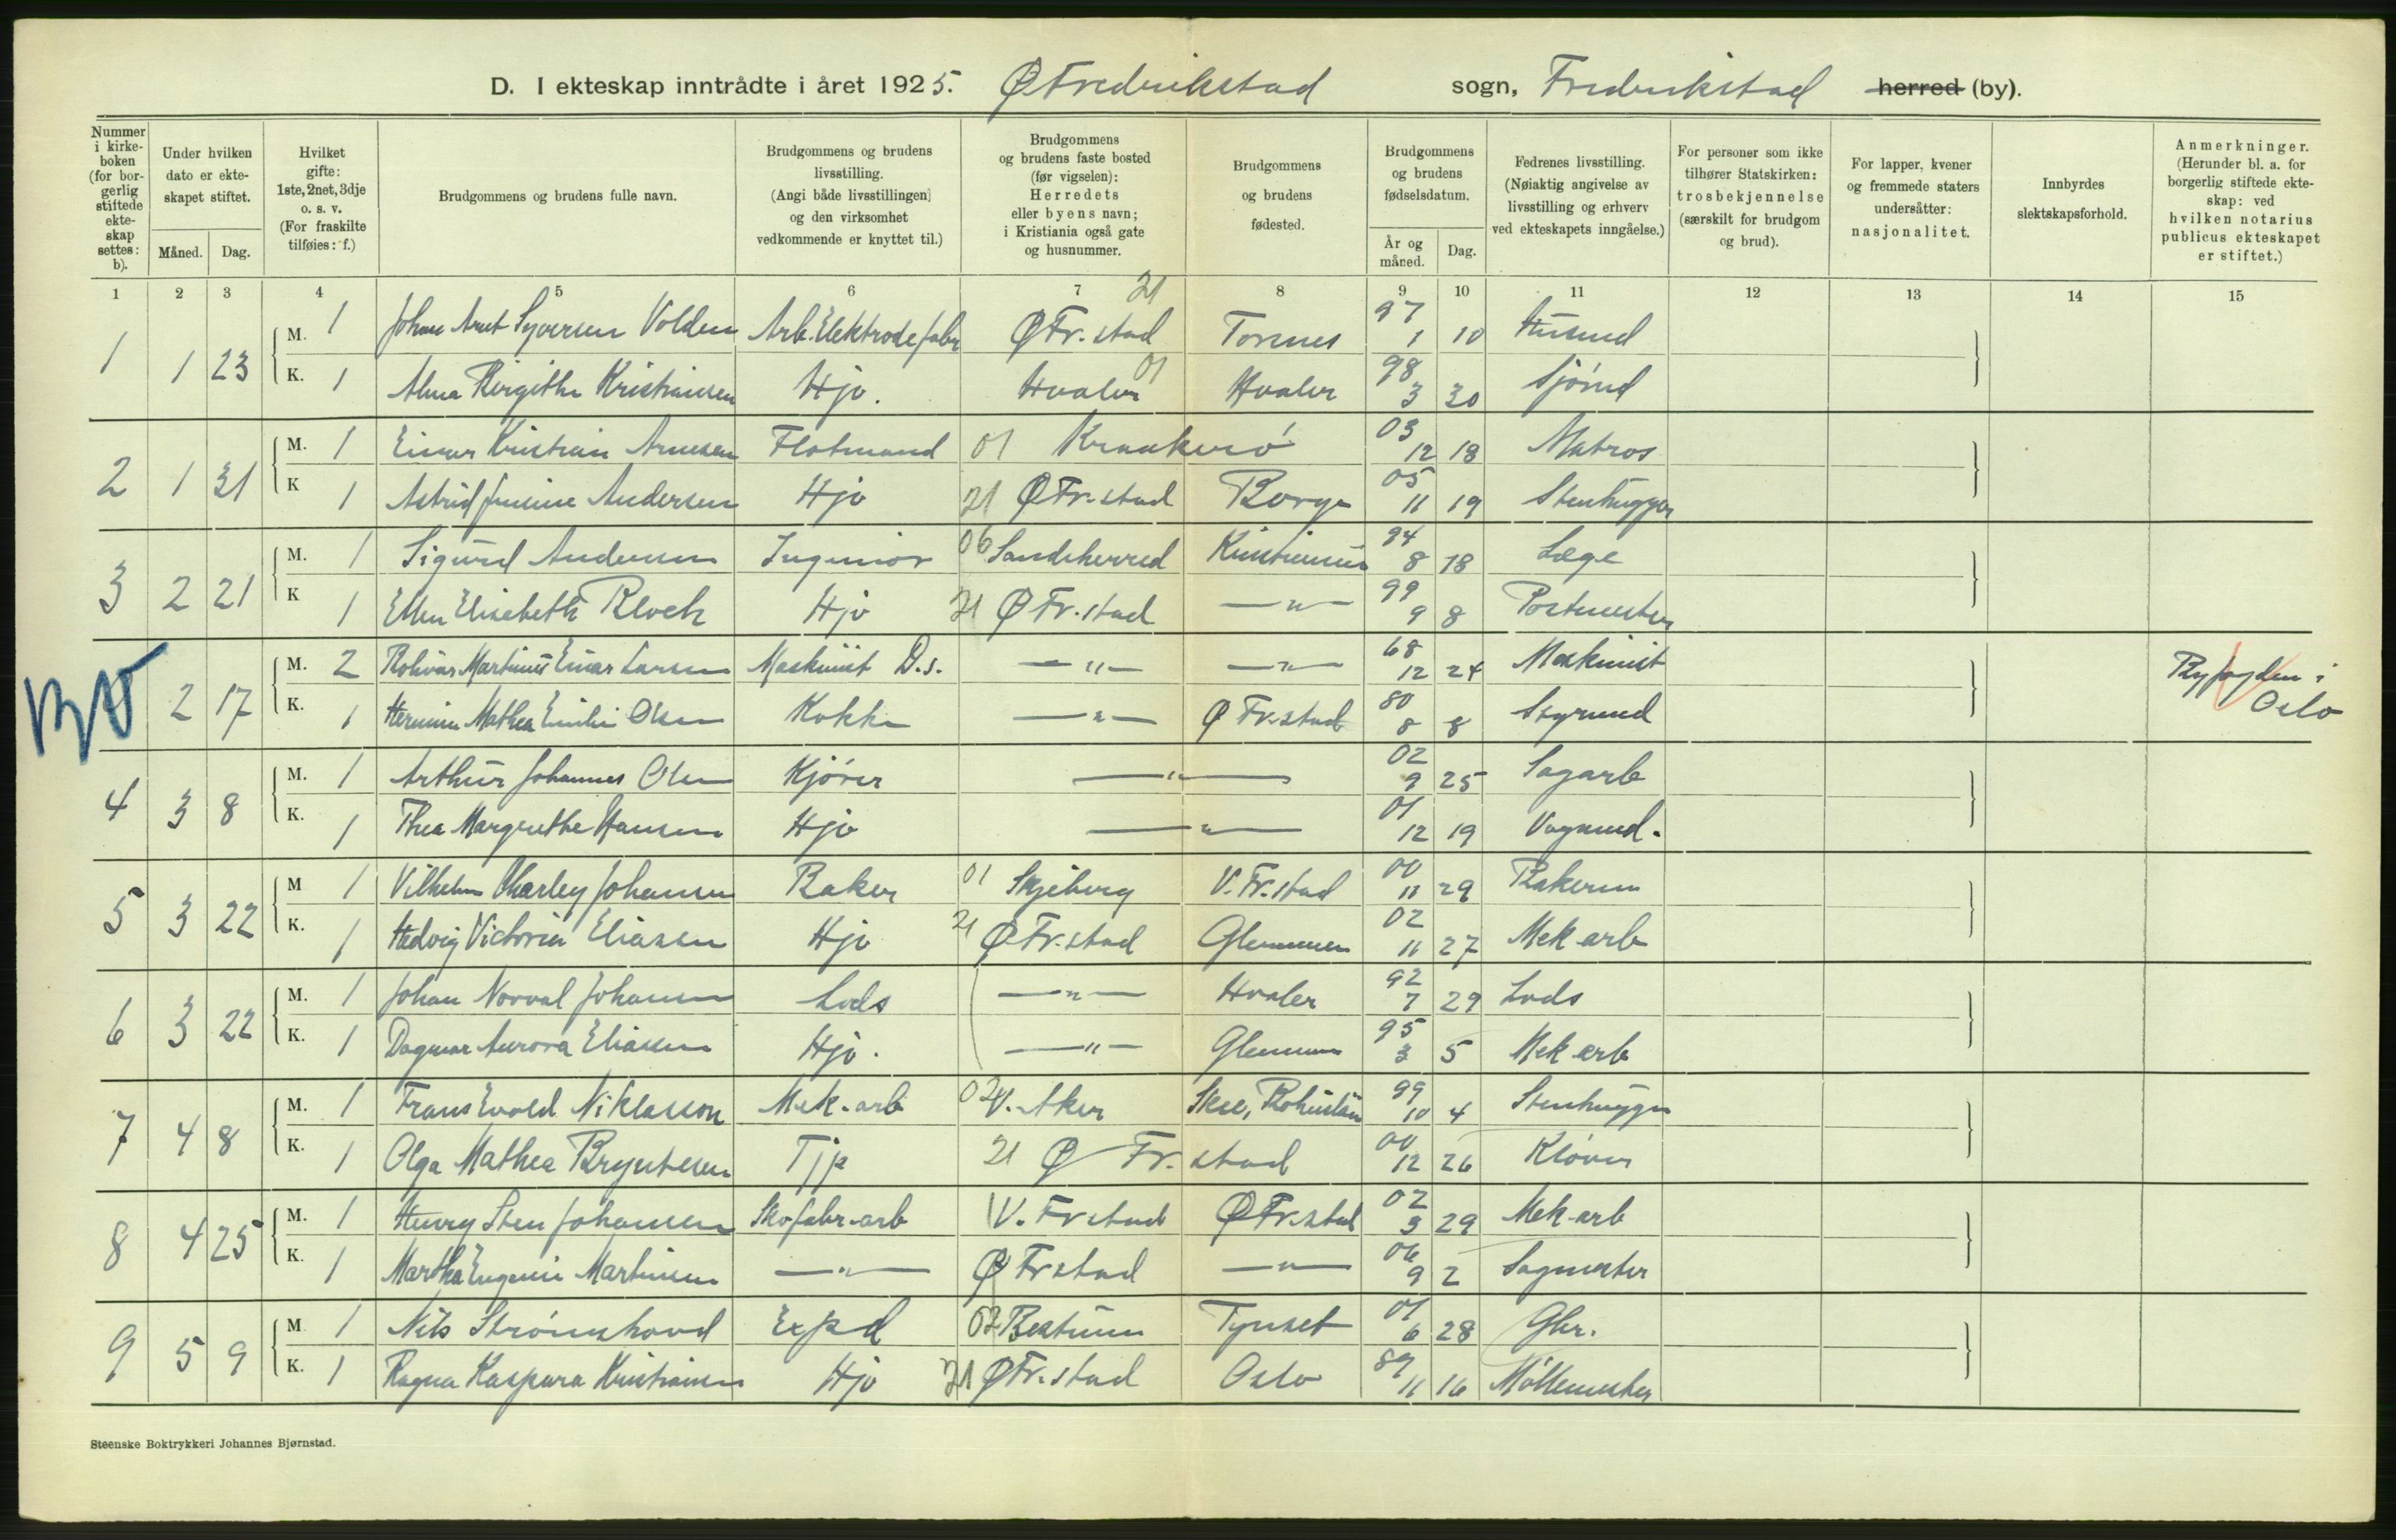 D. I ekteskap inntrådte i året 1925. Ø Fredrikstad sogn, Fredrikstad herred (by).
Nummer i kirkeboken (for borgerlig stiftede ekteskap settes: b).
Under hvilken dato er ekteskapet stiftet.
Måned. Dag.
Hvilket gifte: 1ste, 2net, 3dje o. s. v. (For fraskilte tilføies: f.)
Brudgommens og brudens fulle navn.
Brudgommens og brudens livsstilling. (Angi både livsstillingen og den virksomhet vedkommende er knyttet til.)
Brudgommens og brudens faste bosted (før vigselen): Herredets eller byens navn; i Kristiania også gate og husnummer.
Brudgommens og brudens fødested.
Brudgommens og brudens fødselsdatum.
År og måned. Dag.
Fedrenes livsstilling. (Nøiaktig angivelse av livsstilling og erhverv ved ekteskapets inngåelse.)
For personer som ikke tilhører Statskirken: trosbekjennelse (særskilt for brudgom og brud).
For lapper, kvener og fremmede staters undersåtter: nasjonalitet.
Innbyrdes slektskapsforhold.
Anmerkninger. (Herunder bl. a. for borgerlig stiftede ekteskap: ved hvilken notarius publicus ekteskapet er stiftet.)
1 2 3 4 5 6 7 8 9 10 11 12 13 14 15
1 1 23 M. 1 Johan Arnt Syversen Volden Arb. Elektrodefabr 21 Ø Fr. stad Torsnes 97 1 10 Husmd
K. 1 Alma Birgithe Kristiansen Hjv. 01 Hvaler Hvaler 98 3 30 Sjømd
2 1 31 M. 1 Einar Kristian Arnesen Flotmand 01 Kraakerø 03 12 18 Matros
K 1 Astrid Jensine Andersen Hjv 21 Ø Fr. stad Borge 05 11 19 Stenhugger
3 2 21 M. 1 Sigurd Andersen Ingeniør 06 Sandeherred Kristiania 94 8 18 Læge
K 1 Ellen Elisabeth Bloch Hjv 21 Ø Fr. stad — " — 99 9 8 Postmester
BV 2 17 M. 2 Martinus Einar Larsen Maskinist D.s. — " — — " — 68 12 24 Maskinist Byfogden i Oslo
K. 1 Hermine Mathea Emilie Olsen Kokke — " — Ø Fr. stad 80 8 8 Styrmd
4 3 8 M. 1 Arthur Johannes Olsen Kjører — " — 02 9 25 Sagarb
K. 1 Thea Margrethe Hansen Hjv — " — 01 12 19 Vognmd.
5 3 22 M 1 Vilhelm Charley Johansen Baker 01 Skjeberg V. Fr. stad 00 11 29 Bakerm
K. 1 Hedvig Victoria Eliasen Hjv 21 Ø Fr. stad Glemmen 02 11 27 Mek arb
6 3 22 M. 1 Johan Norval Johansen Lods — " — Hvaler 92 7 29 Lods
K. 1 Dagmar Aurora Eliasen Hjv. — " — Glemmen 95 3 5 Mek arb
7 4 8 M. 1 Frans Evald Niklasson Mek. arb 02 V. Aker Skee, Bohuslän 99 10 4 Stenhugger
K. 1 Olga Mathea Bryntesen Tjp 21 Ø Fr. stad 00 12 26 Kjører
8 4 25 M. 1 Henry Sten Johansen Skofabr. arb V. Fr stad Ø Fr. stad 02 3 29 Mek. arb
K. 1 Martha Eugenie Martinsen — " — Ø Fr stad — " — 06 9 2 Sagmester
9 5 9 M 1 Nils Strømshovd Expd 02 Bestum Tynset 01 6 28 Gbr.
K. 1 Ragna Kaspara Kristiansen Hjv 21 Ø Fr. stad Oslo 89 11 16 Møllemester
Steenske Boktrykkeri Johannes Bjørnstad.